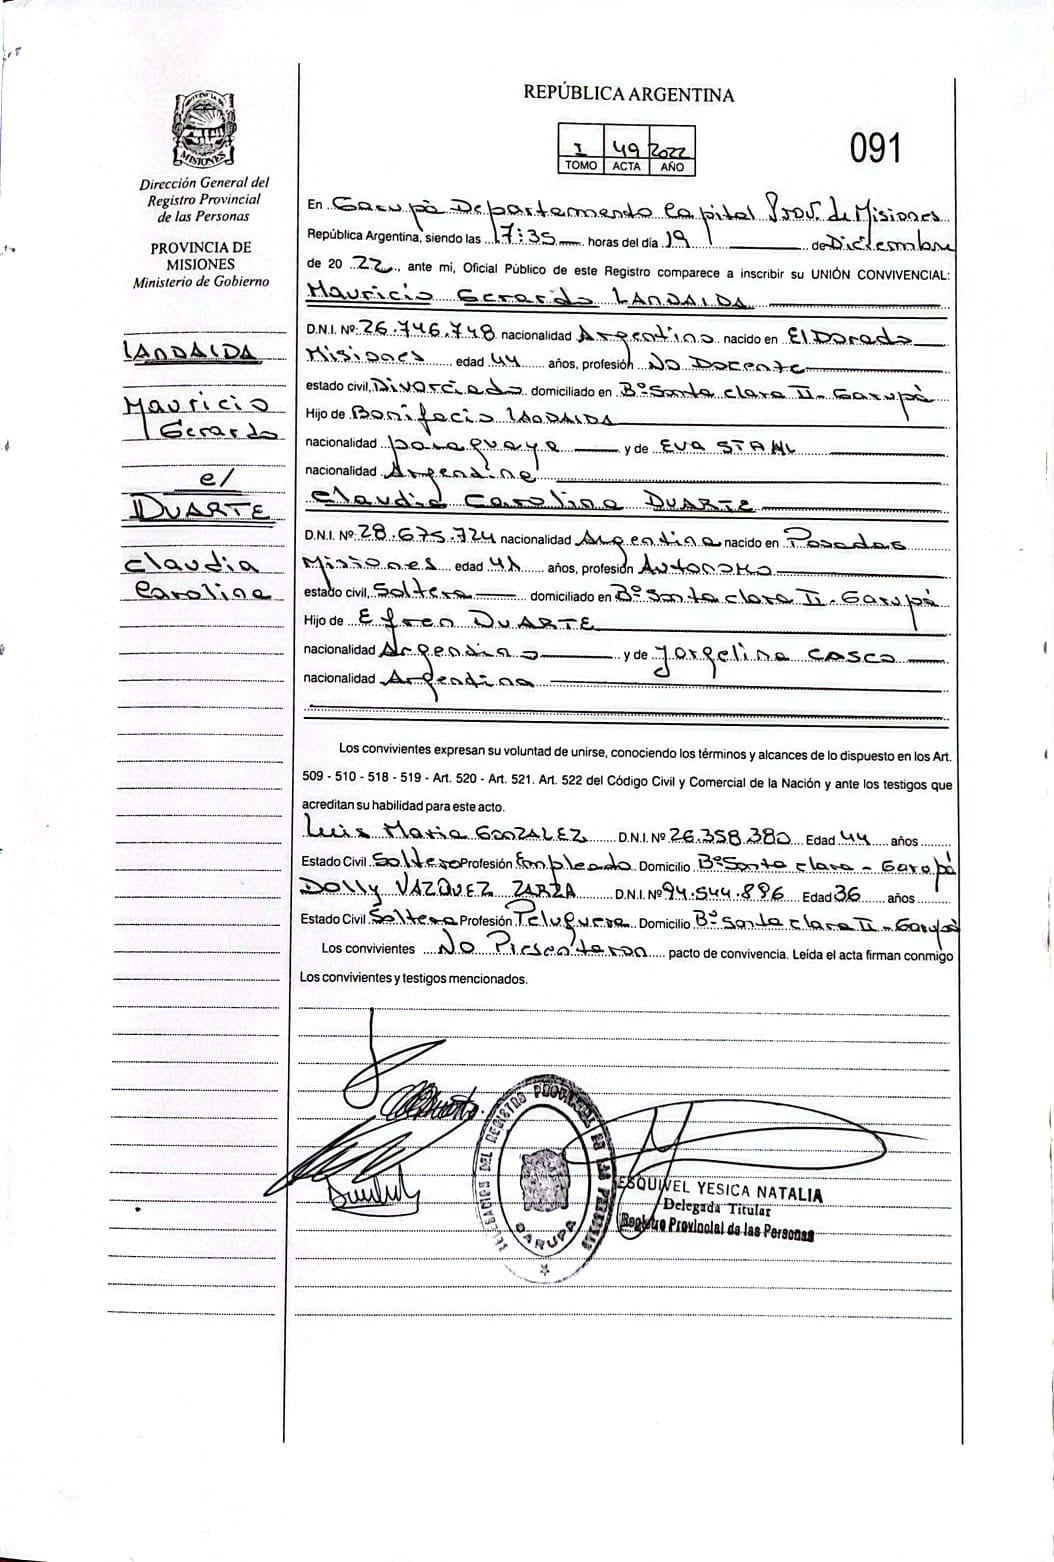 REPÚBLICA ARGENTINA
I 49 2022
TOMO ACTA AÑO
091
PROVINCIA DE
MISIONES
Dirección General del
Registro Provincial
de las Personas
PROVINCIA DE
MISIONES
Ministerio de Gobierno
LANDAIDA
Mauricio
Gerardo
c/
DUARTE
Claudia
Carolina
En Garupá Departamendo Capital Prov. de Misiones
República Argentina, siendo las 17:35 horas del día 19 de Diciembre
de 2022, ante mí, Oficial Público de este Registro comparece a inscribir su UNIÓN CONVIVENCIAL:
Mauricio Gerardo LANDAIDA
D.N.I. Nº 26.746.748 nacionalidad Argentino nacido en El Dorado
Misiones edad 44 años, profesión No Docente
estado civil, Divorciado domiciliado en Bº Santa Clara II - Garupá
Hijo de Bonifacio LANDAIDA
nacionalidad paraguaya y de EVA STAHL
nacionalidad Argentina
Claudia Carolina DUARTE
D.N.I. Nº 28.675.724 nacionalidad Argentina nacido en Posadas
Misiones edad 41 años, profesión Autonoma
estado civil, Soltera domiciliado en Bº Santa clara II - Garupá
Hijo de Efren DUARTE
nacionalidad Argentino y de Jorgelina CASCO
nacionalidad Argentina
Los convivientes expresan su voluntad de unirse, conociendo los términos y alcances de lo dispuesto en los Art.
509 - 510 - 518 - 519 - Art. 520 - Art. 521. Art. 522 del Código Civil y Comercial de la Nación y ante los testigos que
acreditan su habilidad para este acto.
Luis Maria GONZALEZ D.N.I. Nº 26.358.380 Edad 44 años
Estado Civil Soltero Profesión Empleado Domicilio Bº Santa clara - Garupá
Dolly VAZQUEZ ZARZA D.N.I. Nº 94.544.896 Edad 36 años
Estado Civil Soltera Profesión Peluquera Domicilio Bº Santa clara II - Garupá
Los convivientes No Presentaron pacto de convivencia. Leída el acta firman conmigo
Los convivientes y testigos mencionados.
DELEGACION DEL REGISTRO PROVINCIAL DE LAS PERSONAS
GARUPA
ESQUIVEL YESICA NATALIA
Delegada Titular
Registro Provincial de las Personas